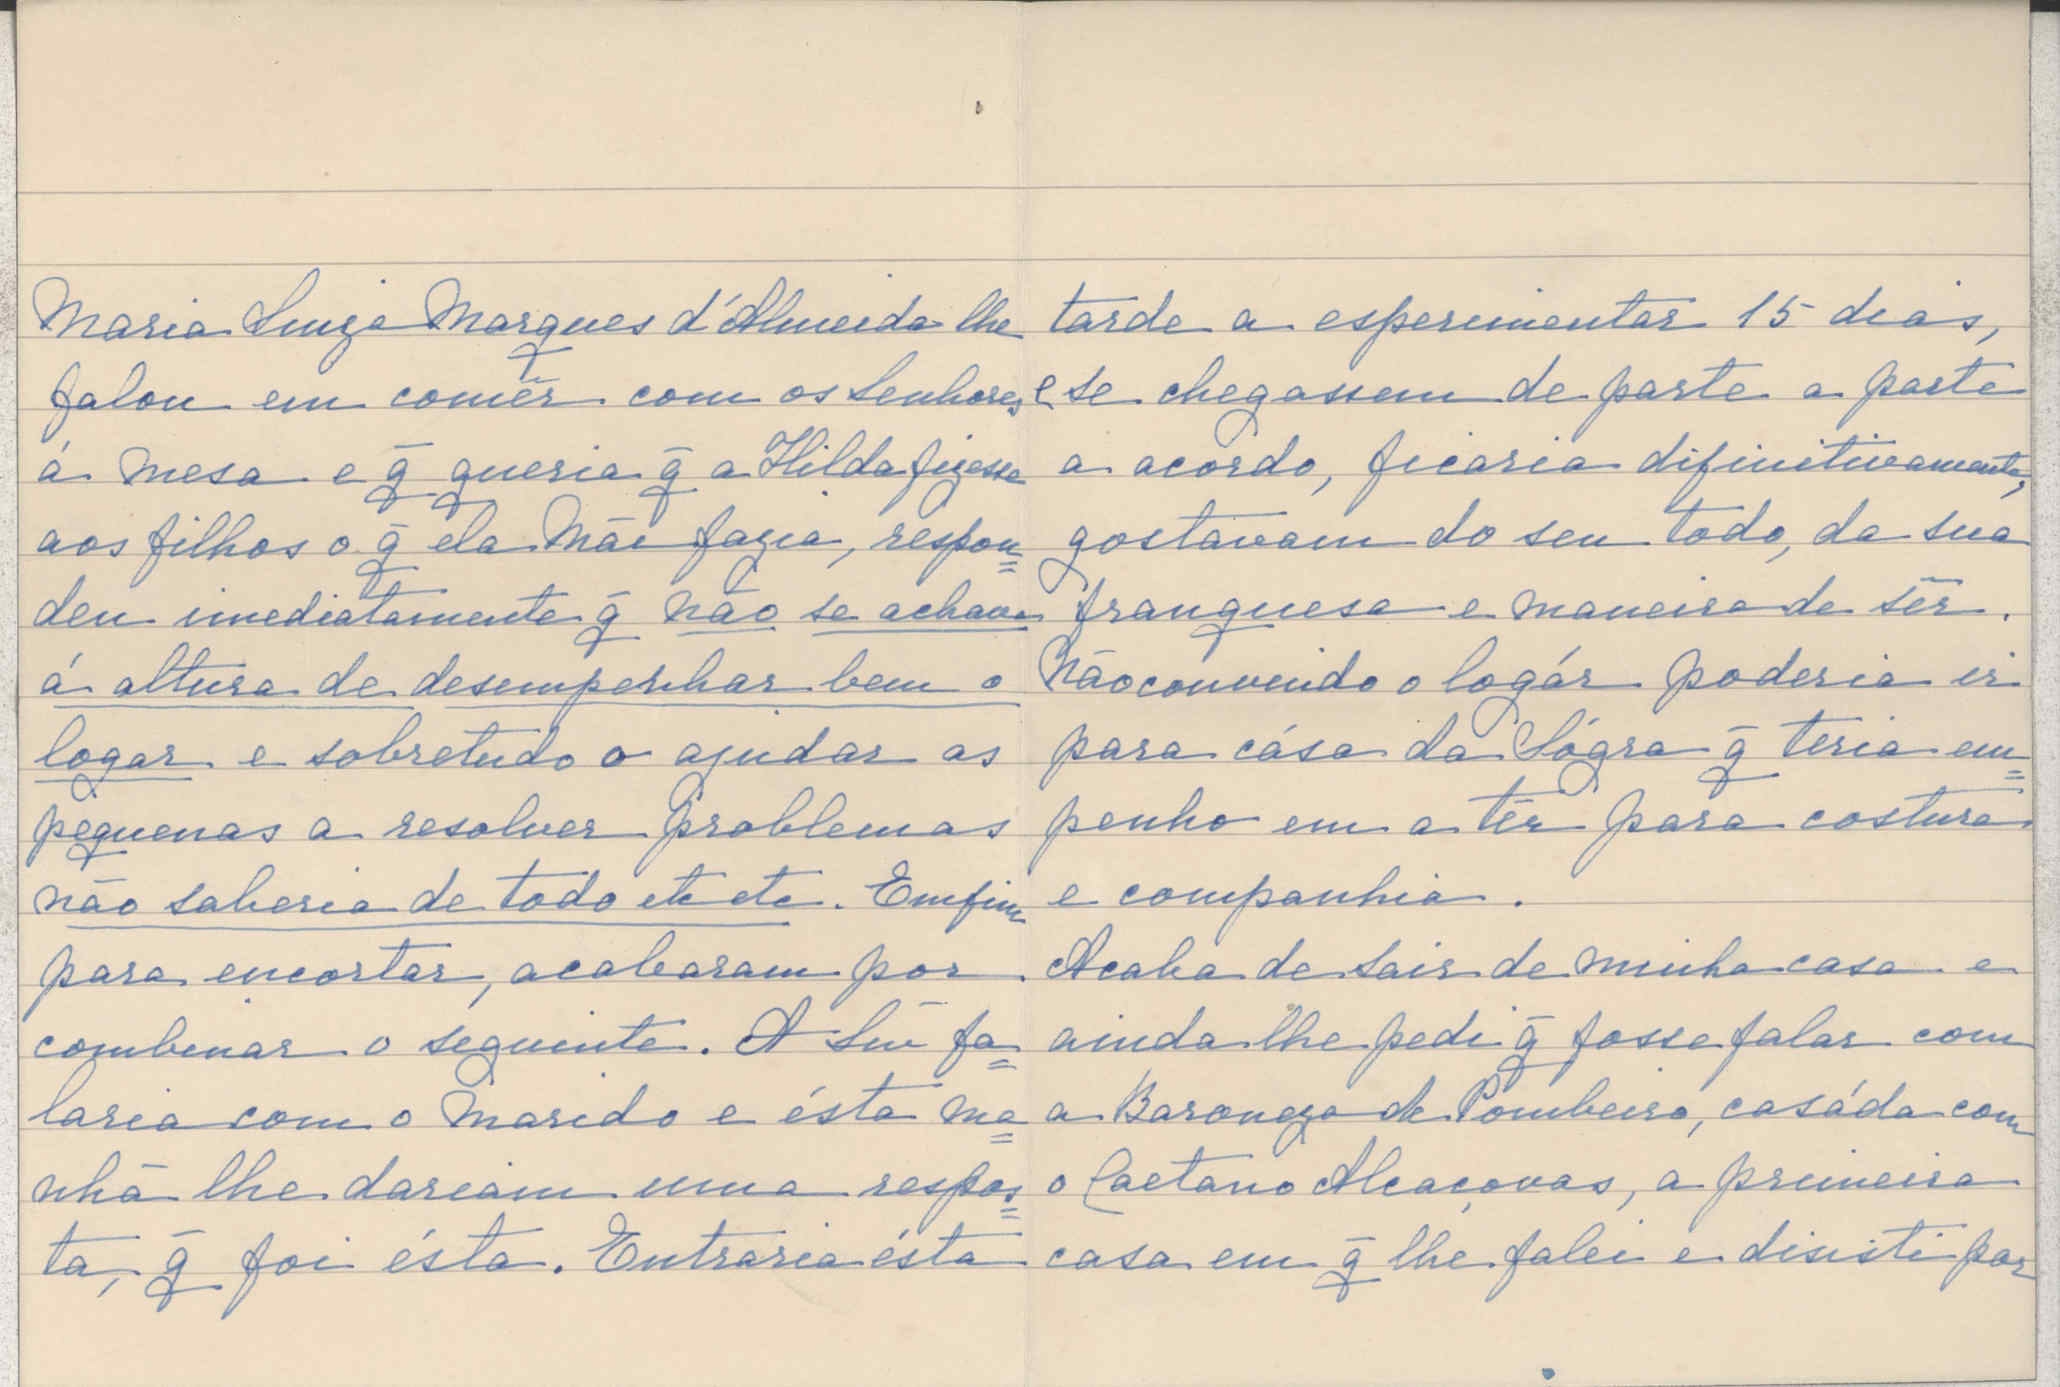 Maria Luiza Marques d'Almeida lhe
falou em comêr com os Senhores
á mesa e q̃ queria q̃ a Hilda fizesse
aos filhos o q̃ ela Mãe fazia, respon=
deu imediatamente q̃ não se achava
á altura de desempenhar bem o
logar e sobretudo o ajudar as
pequenas a resolver problemas
não saberia de todo etc etc. Emfim
para encortar, acabaram por
combinar o seguinte. A Snrª fa=
laria com o Marido e ésta ma=
nhã lhe dariam uma respos=
ta, q̃ foi ésta. Entraria ésta
tarde a esperimentar 15 dias,
e se chegassem de parte a parte
a acordo, ficaria difinitivamente,
gostavam do seu todo, da sua
franquesa e maneira de sêr.
Não convindo o logár poderia ir
para cása da Sógra q̃ teria em=
penho em a têr para costura
e companhia.
Acaba de sair de minha casa e
ainda lhe pedi q̃ fosse falar com
a Baroneza de Pombeiro, casáda com
o Caetano Alcaçovas, a primeira
casa em q̃ lhe falei e disisti por